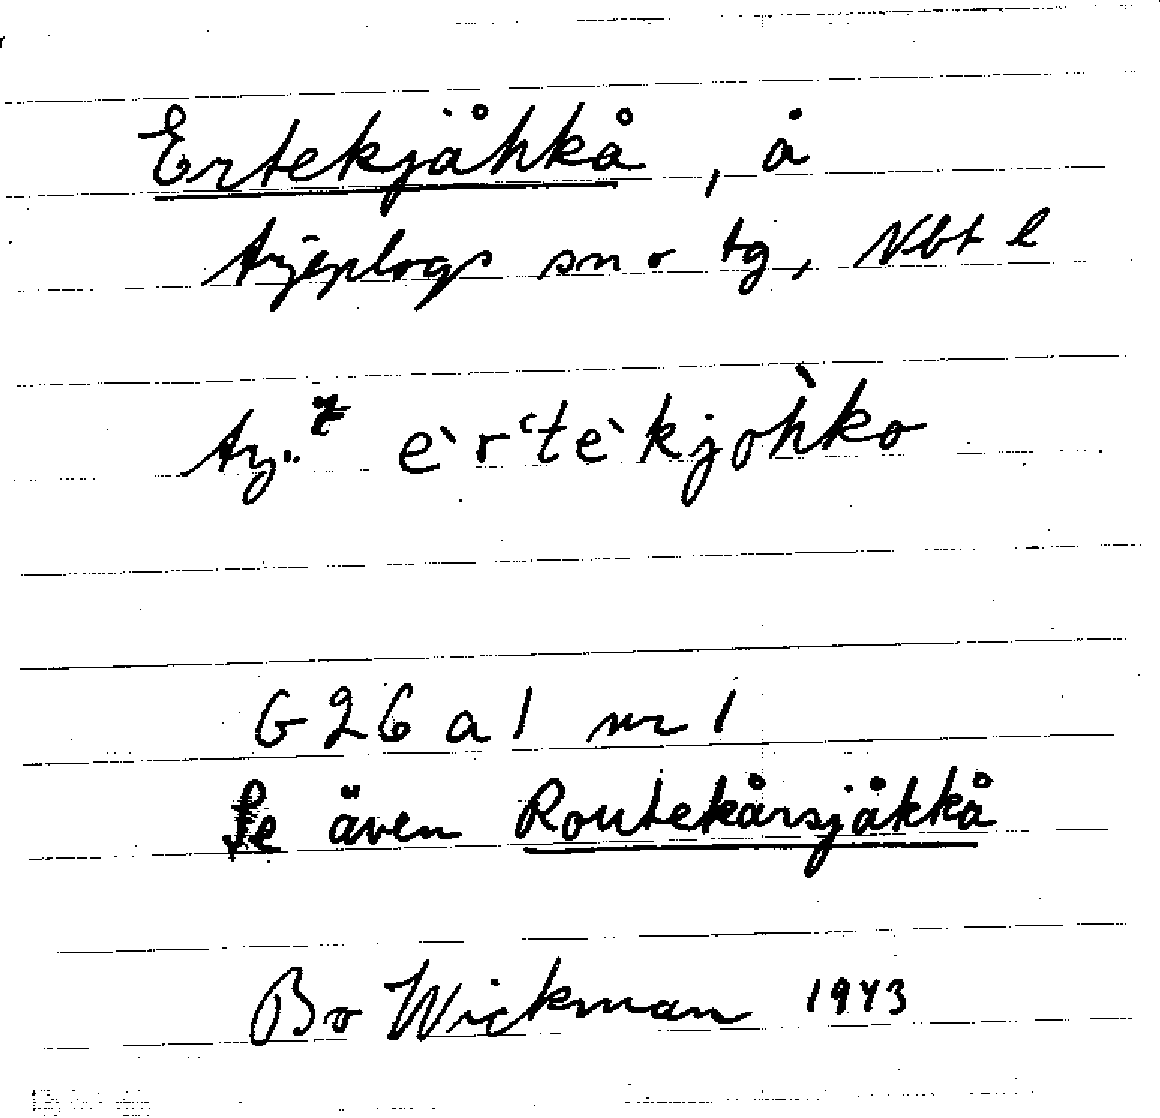 Ertekjåhkå, å
Arjeplogs sn o tg, Nbt l
e`r‘te`kjoh̀ko
G26a1 nr 1
Se även Routekårsjåkkå
Bo Wickman 1943